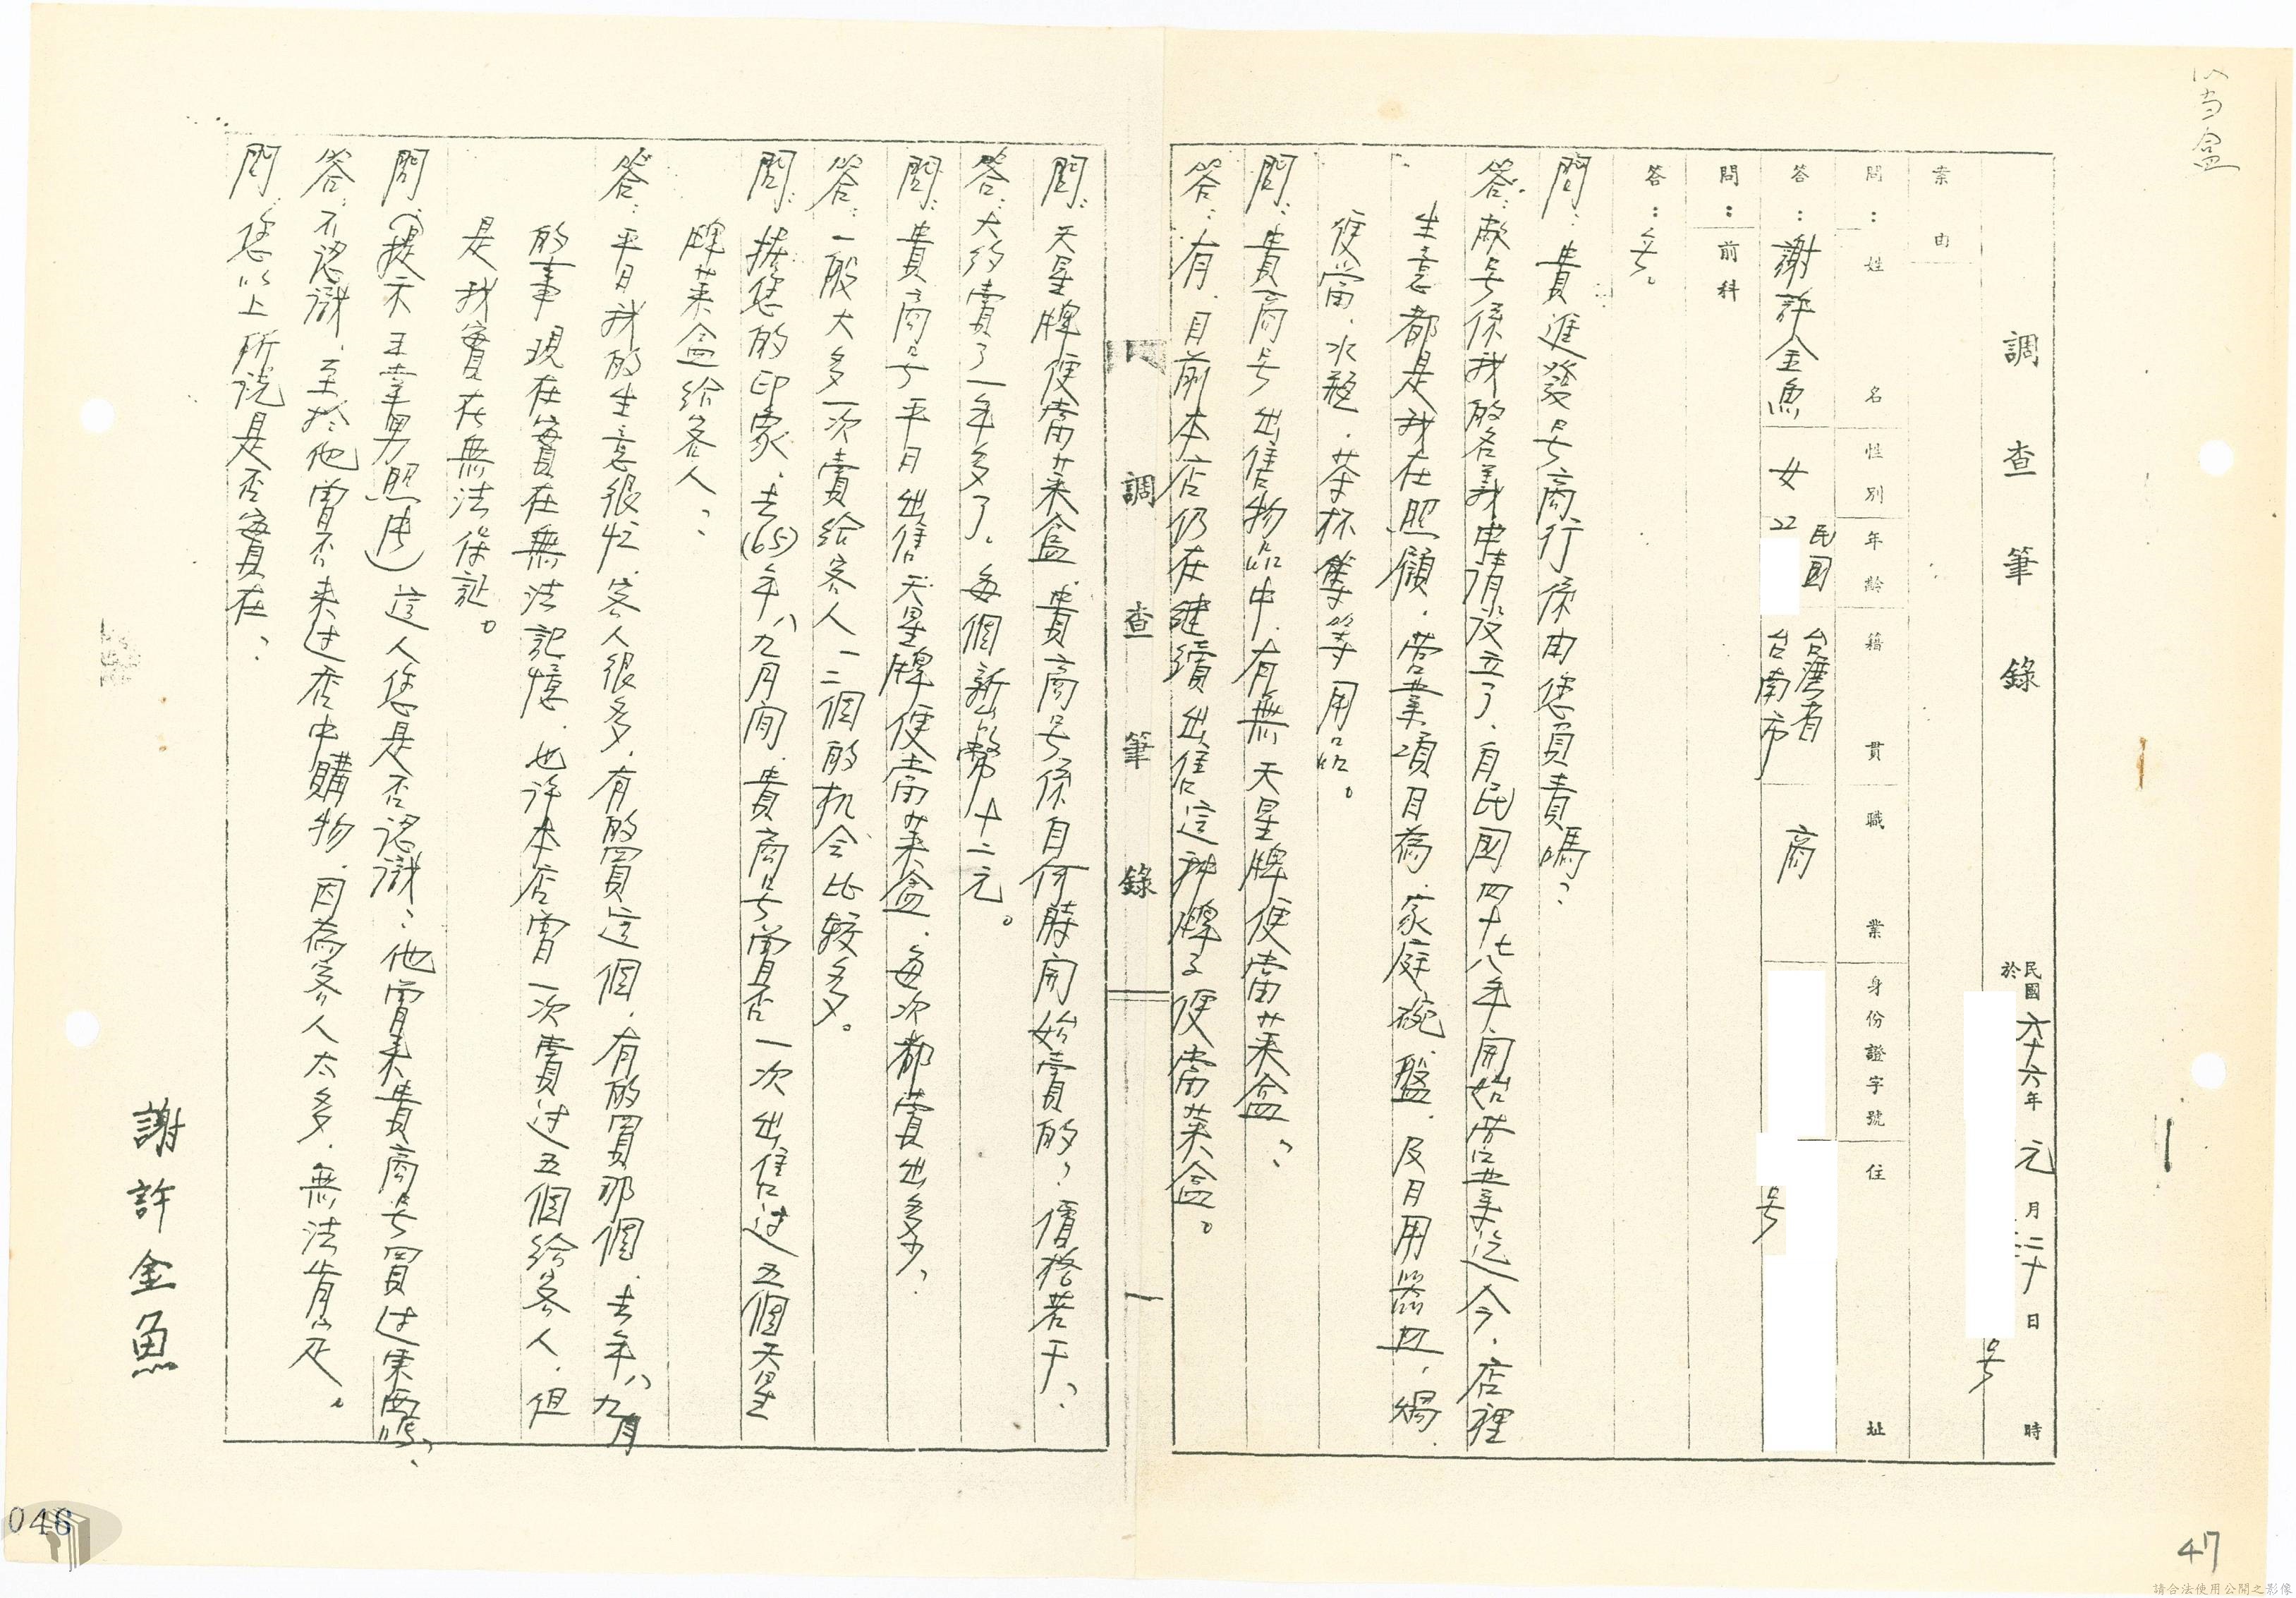 調查筆錄
民國六十六年元月二十日 時
於 号
案由
問：姓名 性別 年齡 籍貫 職業 身份證字號 住址
答：謝許金魚 女 民國22 台灣省台南市 商 号
問：前科
答：无。
問：貴進發号商行係由您負責嗎？
答：敝号係我的名義申請設立了，自民國四十七八年開始營業迄今，店裡
生意都是我在照顧，營業項目為：家庭碗、盤、及日用器皿，燙、
便當、水瓶、茶杯 等用品。
問：貴商号出售物品中，有無天星牌便當菜盒？
答：有，目前本店仍在繼續出售這种牌子便當菜盒。
調查筆錄 一
問：天星牌便當菜盒，貴商号係自何時開始賣的，價格若干？
答：大約賣了一年多了。每個新台幣十二元。
問：貴商号平日出售天星牌便當菜盒，每次都賣出多少？
答：一般大多一次賣給客人一、二個的机会比較多。
問：據您的印象，去(65)年八、九月間，貴商号曾否一次出售过五個天星
牌菜盒給客人？
答：平日我的生意很忙，客人很多，有的買這個，有的買那個，去年八、九月
的事現在實在無法記憶，也許本店曾一次賣过五個給客人，但
是我實在無法保証。
問：（提示王幸男照片）這人您是否認識？他曾來貴商号買过東西嗎？
答：不認識，至於他曾否來过店中購物，因為客人太多，無法肯定。
問：您以上所說是否實在？
謝許金魚
046
47
請合法使用公開之影像